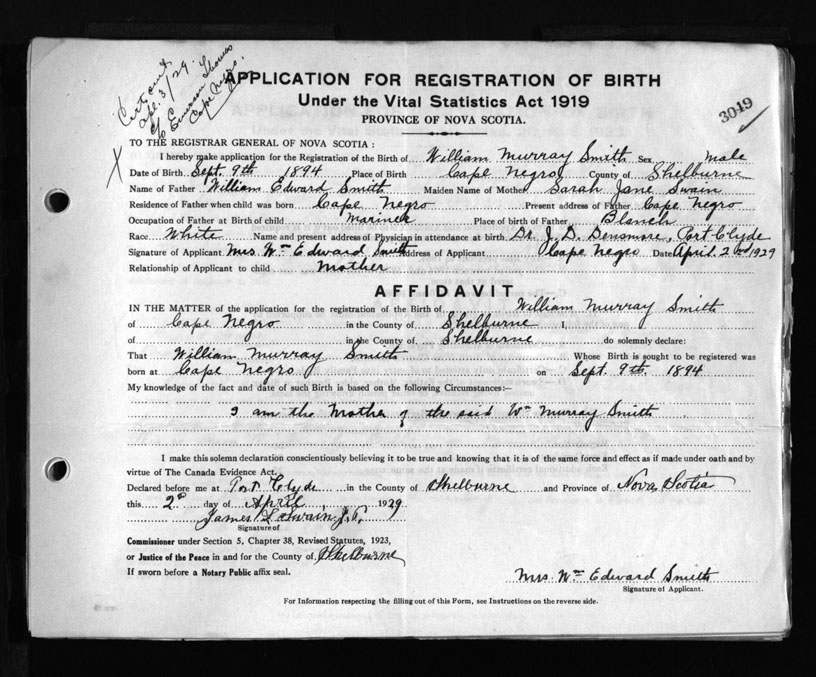 Certs out
Apl. 3/29.
c/o Emerson Thomas
Cape Negro.
APPLICATION FOR REGISTRATION OF BIRTH
Under the Vital Statistics Act 1919
PROVINCE OF NOVA SCOTIA.
3049
TO THE REGISTRAR GENERAL OF NOVA SCOTIA:
X
I hereby make application for the Registration of the Birth of William Murray Smith Sex male
Date of Birth Sept. 9th 1894 Place of Birth Cape Negro County of Shelburne
Name of Father William Edward Smith Maiden Name of Mother Sarah Jane Swain
Residence of Father when child was born Cape Negro Present address of Father Cape Negro
Occupation of Father at Birth of child Mariner Place of birth of Father Blanch
Race White Name and present address of Physician in attendance at birth Dr. J. D. Densmore, Port Clyde
Signature of Applicant Mrs Wm Edward Smith Address of Applicant Cape Negro Date April 2nd 1929
Relationship of Applicant to child Mother
AFFIDAVIT
IN THE MATTER of the application for the registration of the Birth of William Murray Smith
of Cape Negro in the County of Shelburne I,
of in the County of Shelburne do solemnly declare:
That William Murray Smith Whose Birth is sought to be registered was
born at Cape Negro on Sept. 9th. 1894
My knowledge of the fact and date of such Birth is based on the following Circumstances:—
I am the Mother of the said Wm Murray Smith
I make this solemn declaration conscientiously believing it to be true and knowing that it is of the same force and effect as if made under oath and by
virtue of The Canada Evidence Act.
Declared before me at Port Clyde in the County of Shelburne and Province of Nova Scotia
this 2nd day of April 1929
James Swain J.P.
Signature of
Commissioner under Section 5, Chapter 38, Revised Statutes, 1923,
or Justice of the Peace in and for the County of Shelburne
If sworn before a Notary Public affix seal.
Mrs. Wm Edward Smith
Signature of Applicant.
For Information respecting the filling out of this Form, see Instructions on the reverse side.